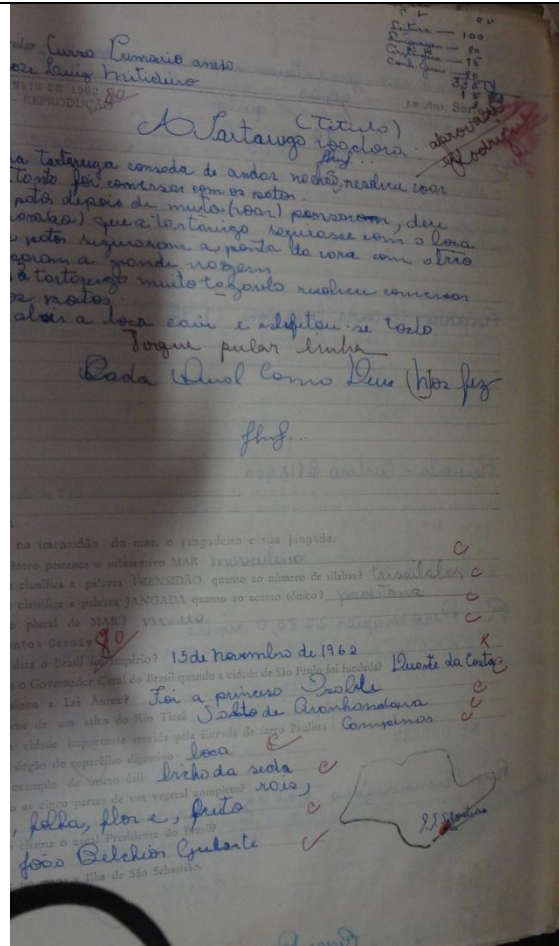 Leitura — 100
Linguagem — 80
Curso Primario anexo
Jose Luiz Mitidieiro
NAIS DE 1962 80
REPRODUÇÃO
(Titulo)
A Tartaruga voadora
aprovado
Rodrigues
a tartaruga cansada de andar no chão, resolveu voar
tanto foi comversar com os patos.
patos depois de muito (voar) pensarem, deu
que a tartaruga segurasse com a boca
patos seguraram a ponta da vara com o bico
a grande viagem
a tartaruga muito tagarela resolveu comversar
os patos
abrir a boca caiu e
Porque pular linha
Cada Qual Como Deus (h)os fez
na imensidão do mar, o jangadeiro e sua jangada.
pertence o substantivo MAR masculino
classifica a palavra IMENSIDÃO quanto ao número de sílabas? trissilabas C
classifica a palavra JANGADA quanto ao acento tônico? paroxitona C
plural de MAR? mares C
ntos Gerais 80
data o Brasil foi Império? 15 de novembro de 1962 X
o Governador Geral do Brasil quando a cidade de São Paulo foi fundada? Duarte da Costa C
a Lei Áurea? Foi a princesa Isabele C
me de um salto do Rio Tietê Salto de Avanhandava C
cidade importante servida pela Estrada de ferro Paulista Campinas C
órgão do aparelho digestivo boca C
exemplo de inseto útil bicho da seda C
as cinco partes de um vegetal completo? rais,
, folha, flor e, fruto C
chama o atual Presidente do Brasil?
João Belchior Gularte C
a Ilha de São Sebastião.